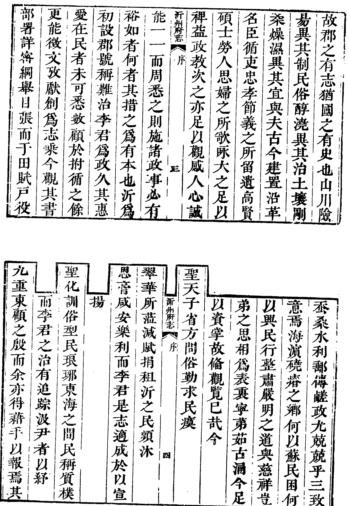 故郡之有志猶國之有史也山川險
易異其制民俗醇澆異其治土壤剛
柔燥濕異其宜與夫古今建置沿革
名臣循吏忠孝節義之所留遺高賢
碩士勞人思婦之所歌咏大之足以
裨益政教次之亦足以觀感人心誠
沂州府志 序 三
能一一而周悉之則施諸政事必有
裕如者何者其措之爲有本也沂爲
初設郡號稱難治李君爲政久其惠
愛在民者未可悉數顧於拊循之餘
更能徵文攷獻創爲志乘今觀其書
部署詳審綱舉目張而于田賦戶役
蚕桑水利郵傳鹺政尤兢兢乎三致
意焉海濱磽瘠之鄉何以蘇民困何
以興民行整肅嚴明之道與慈祥豈
弟之思相爲表裏寧第茹古涵今足
以資掌故俻觀覽已哉今
聖天子省方問俗勤求民瘼
沂州府志 序 四
翠華所蒞減賦捐租沂之民頻沐
恩膏咸安樂利而李君是志適成於以宣
揚
聖化訓俗型民琅琊東海之間民稱質樸
而李君之治有追踪汲尹者以紓
九重東顧之殷而余亦得藉手以報焉其